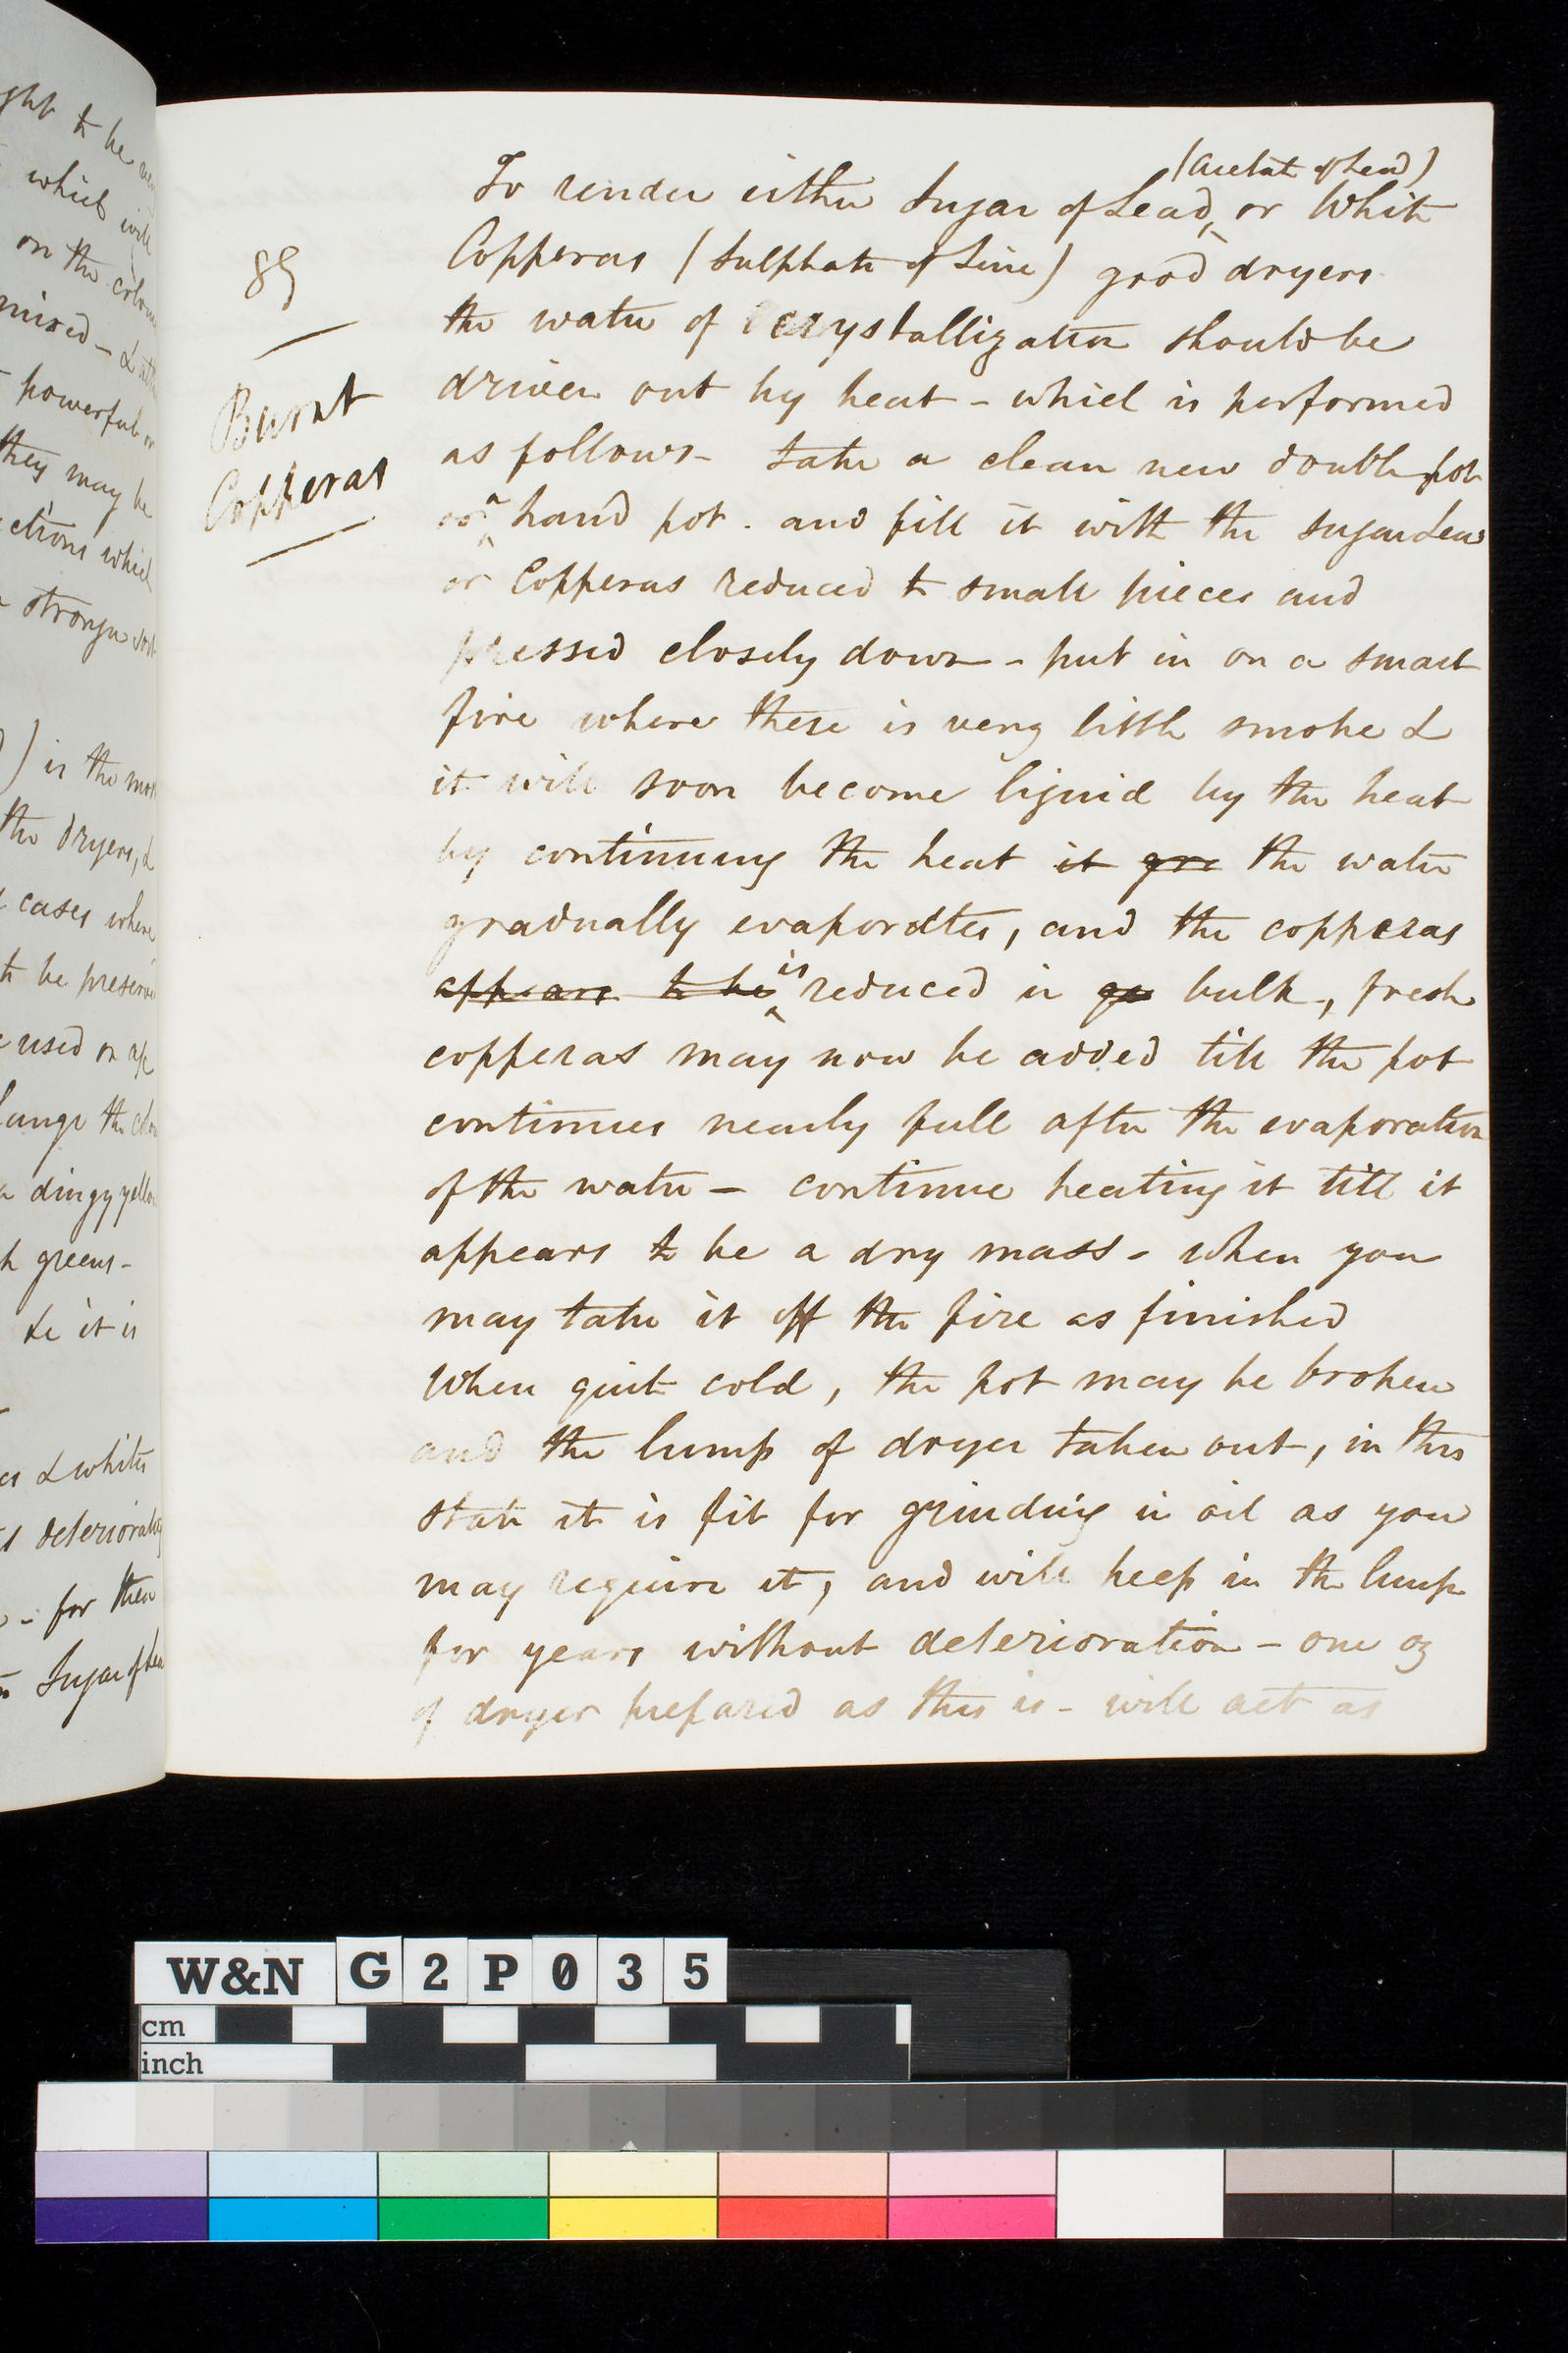 ght to be
which will
on the colour
mixed - &
powerful or
they may be
ctions which
stronger
) is the most
the dryers, &
cases where
to be preserved
used on
the
dingy yellow
greens -
it is
& whites
deteriorating
- for these
Sugar of Lea
85
Burnt
Copperas
(Acetate of Lead)
To render either Sugar of Lead, or White
Copperas (Sulphate of Zinc) good dryers
the water of crystallization should be
driven out by heat - which is performed
as follows - take a clean new double pot
or a hand pot. and fill it with the sugar Lead
or Copperas reduced to small pieces and
pressed closely down - put in on a smart
fire where there is very little smoke &
it will soon become liquid by the heat
by continuing the heat it gra the water
gradually evaporates, and the copperas
appears to be is reduced in bulk, fresh
copperas may now be added till the pot
continues nearly full after the evaporation
of the water - continue heating it till it
appears to be a dry mass - when you
may take it off the fire as finished
When quite cold, the pot may be broken
and the lump of dryer taken out, in this
state it is fit for grinding in oil as you
may require it, and will keep in the lump
for years without deterioration - one oz
of dryer prepared as this is - will act as
W&N G2P035
cm
inch